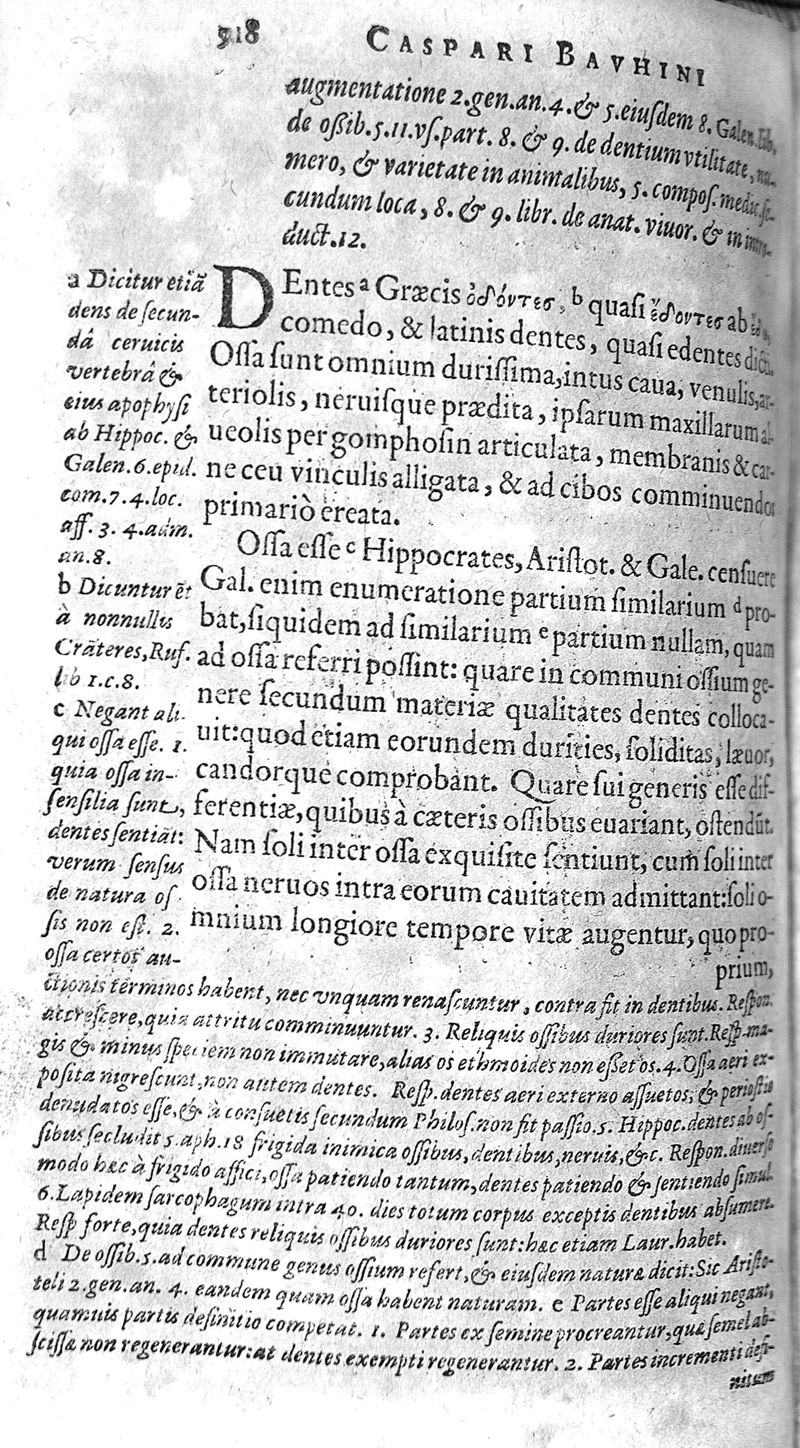 518
CASPARI BAVHINI
augmentatione 2. gen. an. 4. & 5. eiuſdem 8. Galen. lib.
de oßib. 5. 11. vſ. part. 8. & 9. de dentium vtilitate, nu-
mero, & varietate in animalibus, 5. compoſ. medic. ſe-
cundum loca, 8. & 9. libr. de anat. viuor. & in intro-
duct. 12.
DEntes ᵃ Græcis ὀδόντες, ᵇ quaſi ἔδοντες ab
comedo, & latinis dentes, quaſi edentes dicti.
Oſſa ſunt omnium duriſſima, intus caua, venulis, ar-
teriolis, neruiſque prædita, ipſarum maxillarum al-
ueolis per gomphoſin articulata, membranis & car-
ne ceu vinculis alligata, & ad cibos comminuendos
primariò ereata.
Oſſa eſſe ᶜ Hippocrates, Ariſtot. & Gale. cenſuere
Gal. enim enumeratione partium ſimilarium ᵈ pro-
bat, ſiquidem ad ſimilarium ᵉ partium nullam, quam
ad oſſa referri poſſint: quare in communi oſſium ge-
nere ſecundum materiæ qualitates dentes colloca-
uit: quod etiam eorundem durities, ſoliditas, læuor,
candorque comprobant. Quare ſui generis eſſe dif-
ferentiæ, quibus à cæteris oſſibus euariant, oſtendūt.
Nam ſoli inter oſſa exquiſite ſentiunt, cum ſoli inter
oſſa neruos intra eorum cauitatem admittant: ſoli o-
mnium longiore tempore vitæ augentur, quo pro-
prium,
a Dicitur etiā
dens de ſecun-
dâ ceruicis
vertebrâ &
eius apophyſi
ab Hippoc. &
Galen. 6. epid.
com. 7. 4. loc.
aff. 3. 4. adm.
an. 8.
b Dicuntur ēt
à nonnullis
Crāteres, Ruf.
lib 1. c. 8.
c Negant ali-
qui oſſa eſſe. 1.
quia oſſa in-
ſenſilia ſunt,
dentes ſentiāt:
verum ſenſus
de natura oſ
ſis non eſt. 2.
oſſa certos au-
ctionis terminos habent, nec vnquam renaſcuntur, contra fit in dentibus. Reſpon.
accreſcere, quia attritu comminuuntur. 3. Reliquis oſſibus duriores ſunt. Reſp. ma-
gis & minus ſpeciem non immutare, alias os ethmoides non eſſet os. 4. Oſſa aeri ex-
poſita nigreſcunt, non autem dentes. Reſp. dentes aeri externo aſſuetos, & perioſtio
denudatos eſſe, & à conſuetis ſecundum Philoſ. non fit paſſio. 5. Hippoc. dentes ab oſ-
ſibus ſecludit 5. aph. 18 frigida inimica oſſibus, dentibus, neruis, &c. Reſpon. diuerſo
modo hæc à frigido affici, oſſa patiendo tantum, dentes patiendo & ſentiendo ſimul.
6. Lapidem ſarcophagum intra 40. dies totum corpus exceptis dentibus abſumere.
Reſp forte, quia dentes reliquis oſſibus duriores ſunt: hæc etiam Laur. habet.
d De oſſib. 5. ad commune genus oſſium refert, & eiuſdem naturæ dicit: Sic Ariſto-
teli 2. gen. an. 4. eandem quam oſſa habent naturam. e Partes eſſe aliqui negant,
quamuis partis definitio competat. 1. Partes ex ſemine procreantur, quæ ſemel ab-
ſciſſæ non regenerantur: at dentes exempti regenerantur. 2. Partes incrementi defi-
nitum